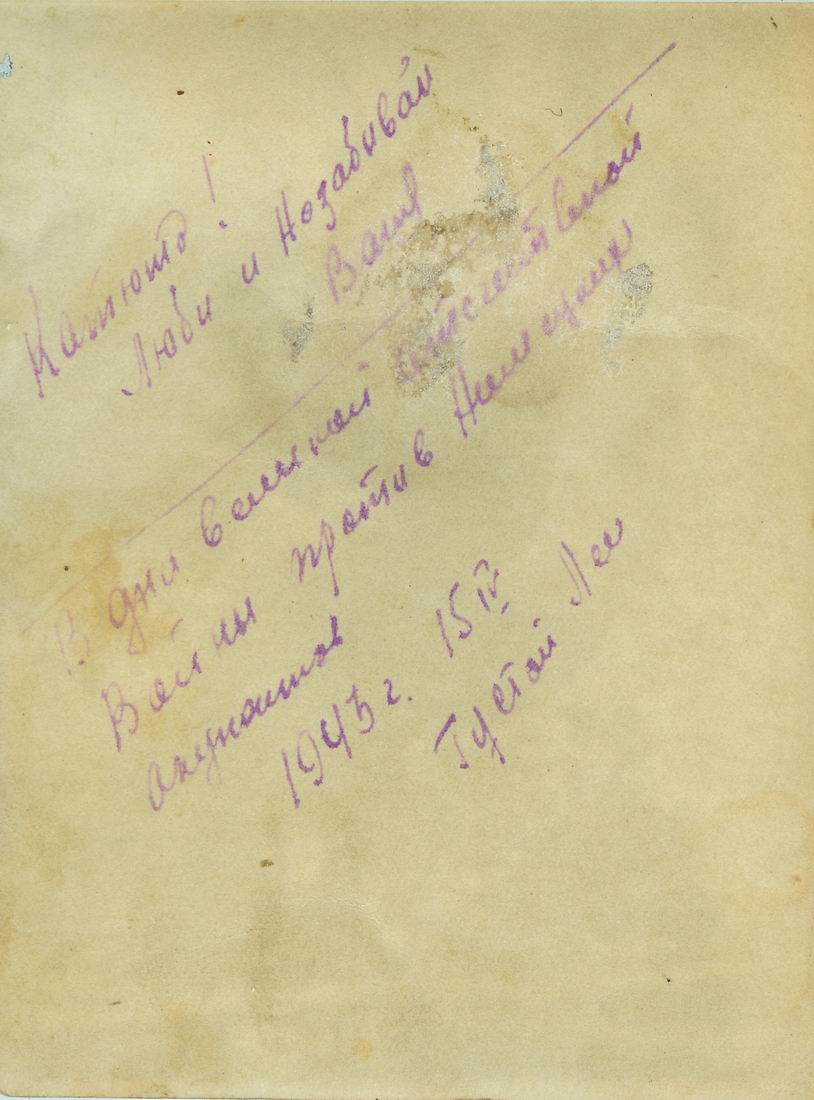 Катюша!
Люби и Незабивай
Ваня
В дни великой отечственой
Войны против Немецких
окупантов
1943 г. 15 IV
Густой Лес